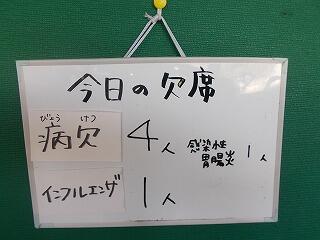 今日の欠席
びょう けつ
病欠 4人 感染性胃腸炎 1人
インフルエンザ 1人